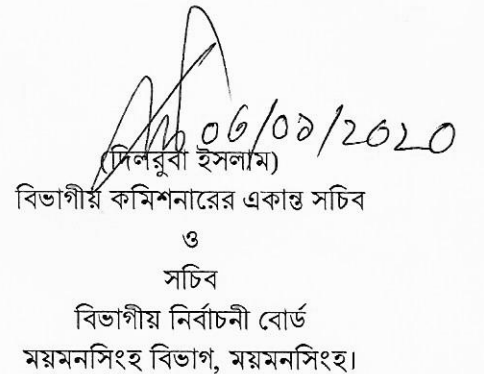 06/09/2020
(দিলরুবা ইসলাম)
বিভাগীয় কমিশনারের একান্ত সচিব
ও
সচিব
বিভাগীয় নির্বাচনী বোর্ড
ময়মনসিংহ বিভাগ, ময়মনসিংহ।